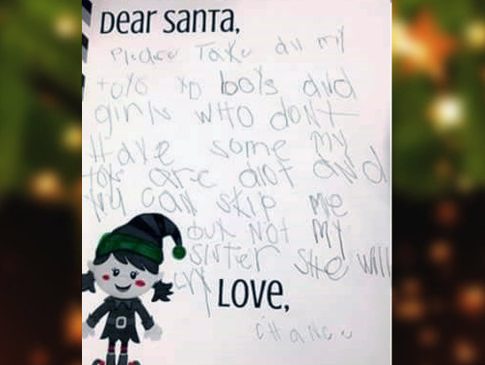 Dear Santa,
Please Take all my
toys to boys and
girls who dont
Have some my
toys are alot and
you can skip me
but Not my
sister she will
cry
Love,
chance